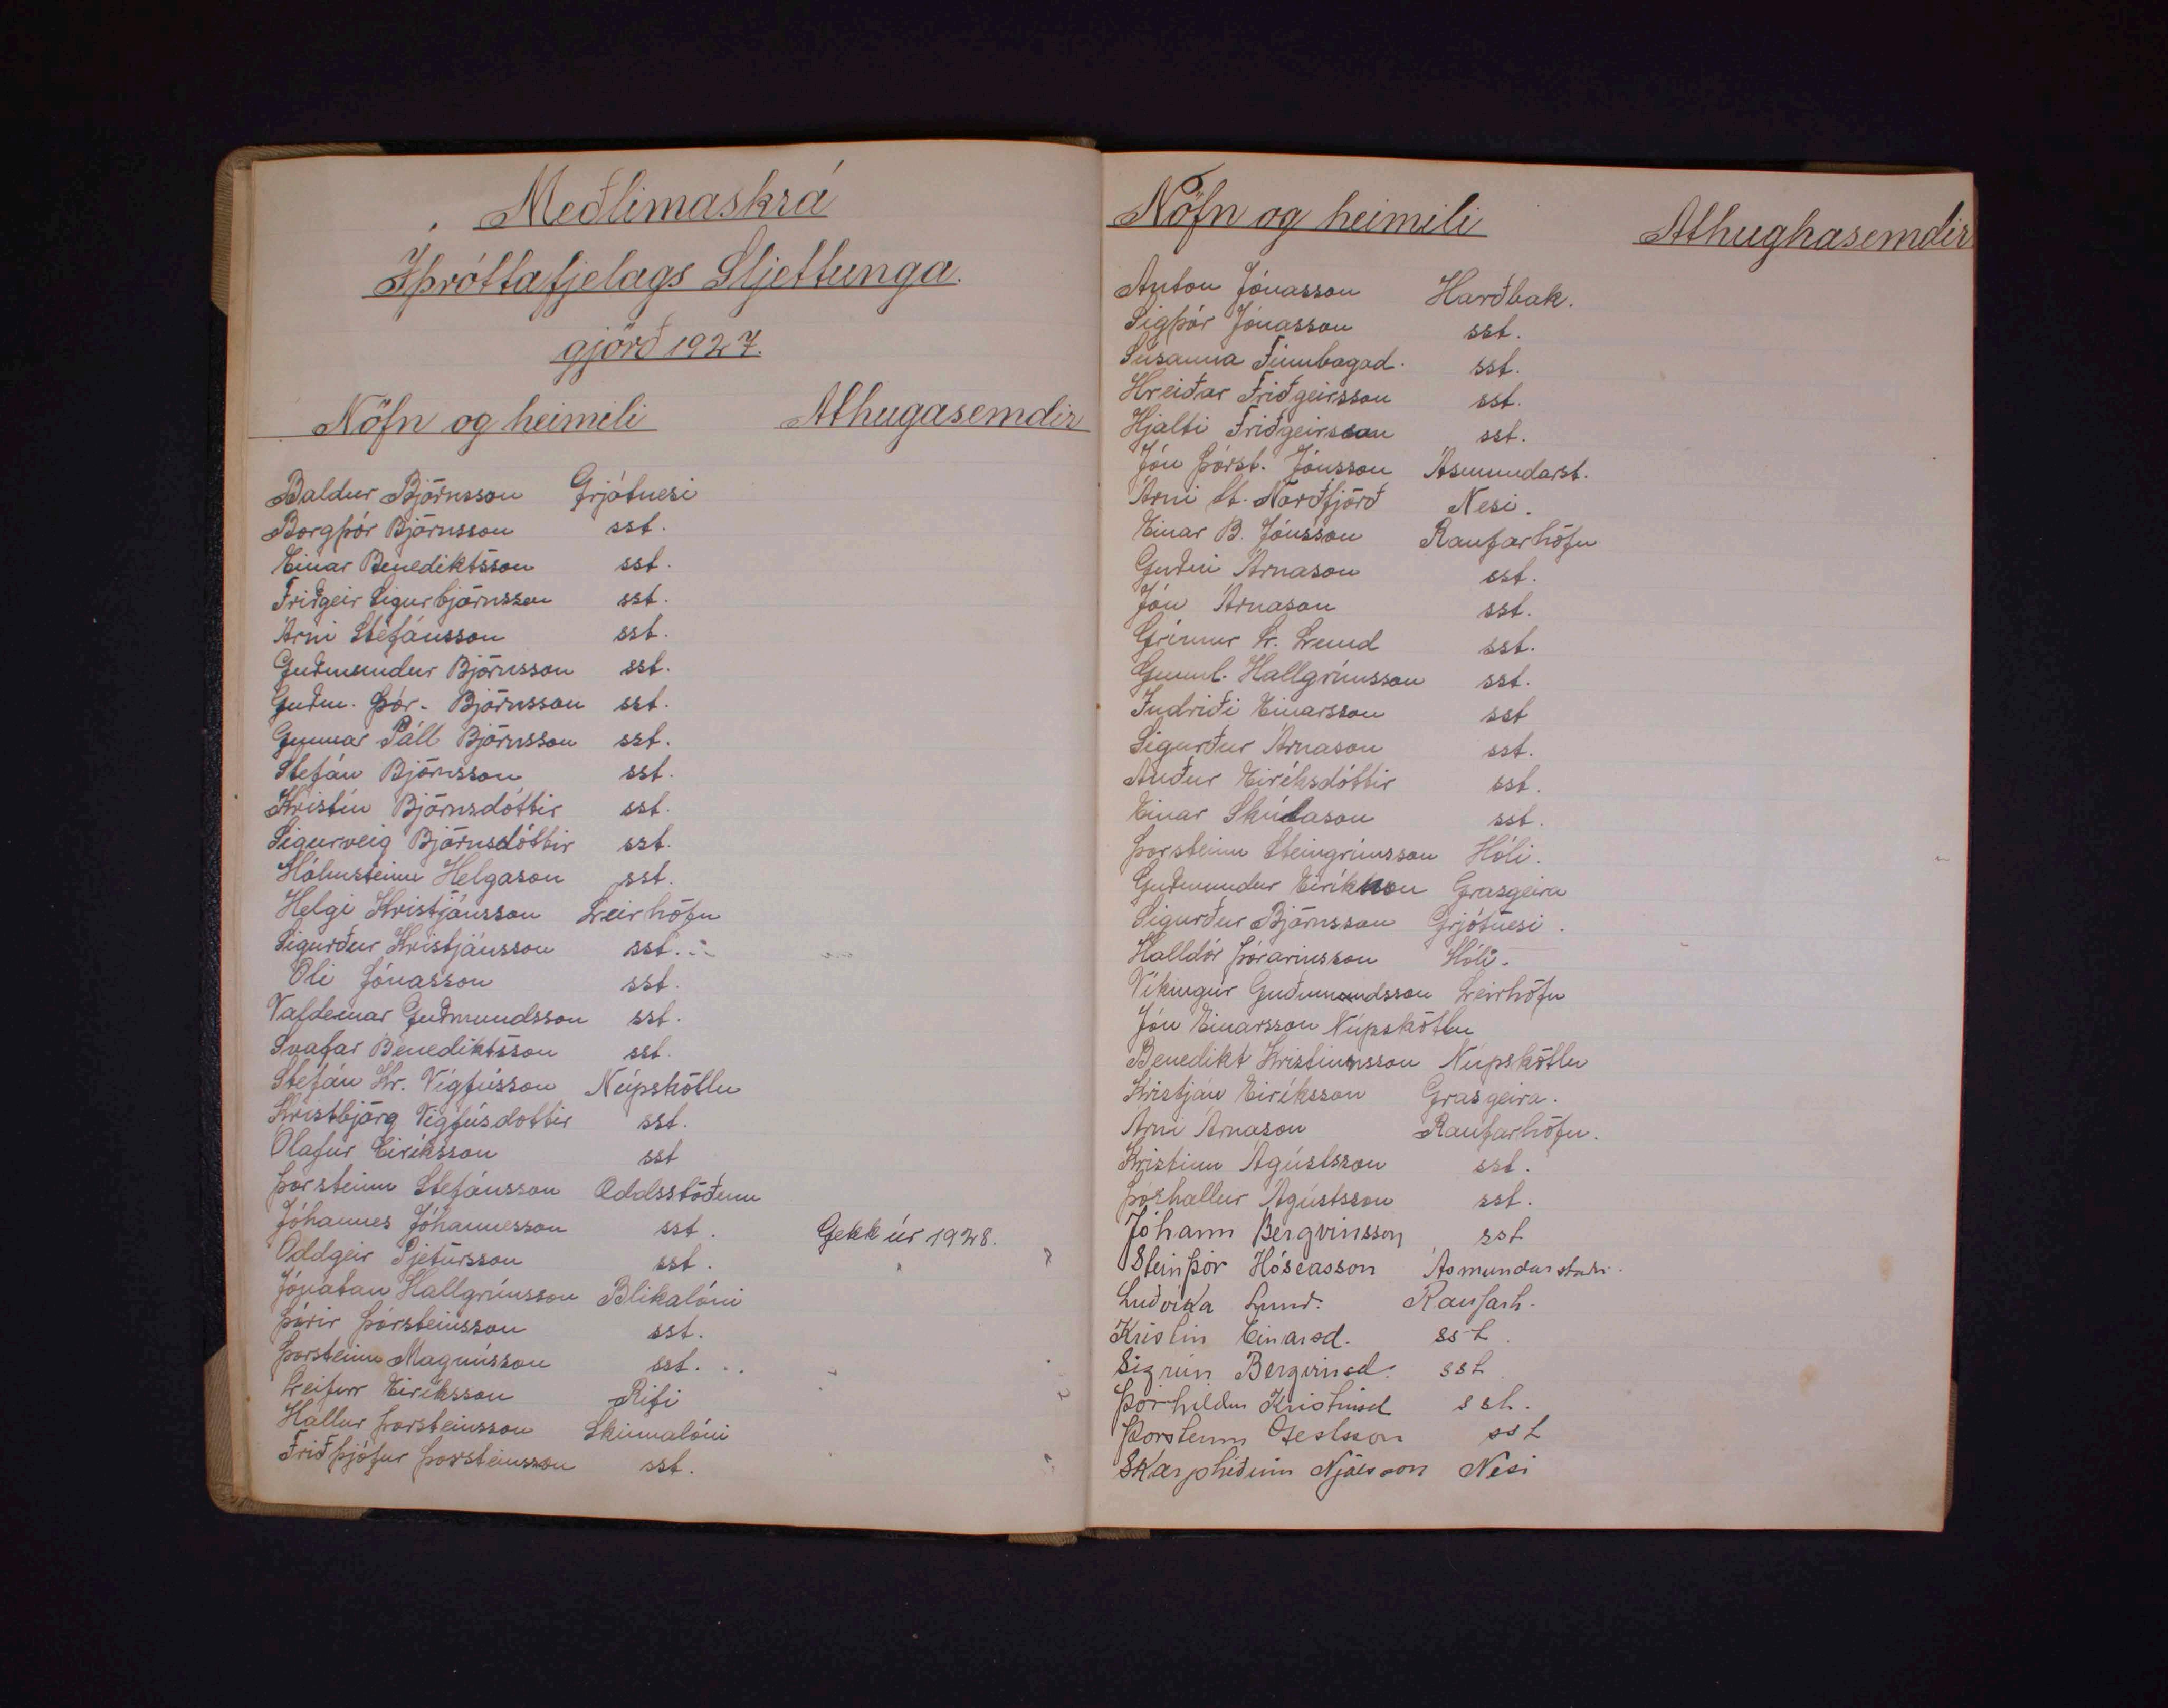 Meðlimaskrá
Íþróttafjelags Sljettunga.
gjörð 1927.
Nöfn og heimili Athugasemdir
Baldur Björnsson Grjótnesi
Borgþór Björnsson sst.
Einar Benediktsson sst.
Friðgeir Sigurbjörnsson sst.
Árni Stefánsson sst.
Guðmundur Björnsson sst.
Guðm. Þór. Björnsson sst.
Gunnar Páll Björnsson sst.
Stefán Björnsson sst.
Kristín Björnsdóttir sst.
Sigurveig Björnsdóttir sst.
Hólmsteinn Helgason sst.
Helgi Kristjánsson Leirhöfn
Sigurður Kristjánsson sst.
Óli Jónasson sst.
Valdemar Guðmundsson sst.
Svafar Benediktsson sst.
Stefán Kr. Vigfússon Núpskötlu
Kristbjörg Vigfúsdottir sst.
Ólafur Eiríksson sst
Þorsteinn Stefánsson Oddsstöðum
Jóhannes Jóhannesson sst. Gekk úr 1928.
Oddgeir Pjetursson sst.
Jónatan Hallgrímsson Blikalóni
Þórir Þorsteinsson sst.
Þorsteinn Magnússon sst.
Leifur Eiríksson Rifi
Hallur Þorsteinsson Skinnalóni
Friðþjófur Þorsteinsson sst.
Nöfn og heimili Athughasemdir
Anton Jónasson Harðbak.
Sigþór Jónasson sst.
Súsanna Finnbogad. sst.
Hreiðar Friðgeirsson sst.
Hjalti Friðgeirsson sst.
Jón Þórst. Jónsson Ásmundarst.
Árni St. Norðfjörð Nesi.
Einar B. Jónsson Raufarhöfn
Guðni Árnason sst.
Jón Árnason sst.
Grímur Lr. Lund sst.
Gunnl. Hallgrímsson sst.
Indriði Einarsson sst
Sigurður Árnason sst.
Auður Eiríksdóttir sst.
Einar Skúlason sst.
Þorsteinn Steingrímsson Hóli.
Guðmundur Eiríksson Grasgeira
Sigurður Björnsson Grjótnesi.
Halldór Þórarinsson Hóli.
Víkingur Guðmundsson Leirhöfn
Jón Einarsson Núpskötlu
Benedikt Kristinnsson Núpskötlu
Kristján Eiríksson Grasgeira.
Árni Árnason Raufarhöfn.
Kristinn Ágústsson sst.
Þórhallur Ágústsson sst.
Jóhann Bergvinsson sst
Steinþór Hóseasson Ásmundarstaðir
Luðvika Lund. Raufarh.
Kristín Einarsd. sst.
Sigrún Bergvinsd. sst
Þórhildur Kristinsd sst.
Þorsteinn Gestsson sst
Skarphéðinn Njálsson Nesi